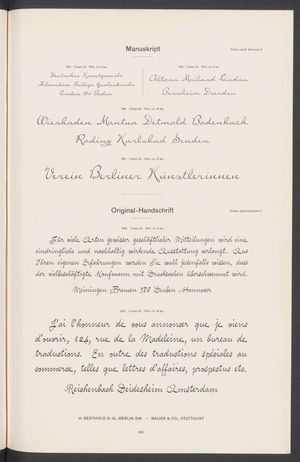 Manuskript
Deutsches Kunstgewerbe
Altona Mailand Lindau
Bensheim Dresden
Wiesbaden Mantua Detmold Bodenbach
Roding Karlsbad Senden
Verein Berliner Künstlerinnen
Original-Handschrift
Für viele Arten gewisser geschäftlicher Mitteilungen wird eine
eindringliche und nachhaltig wirkende Ausstattung verlangt. Aus
Ihren eigenen Erfahrungen werden Sie wohl jedenfalls wissen, dass
der vielbeschäftigte Kaufmann mit Drucksachen überschwemmt wird.
Meiningen Bremen 578 Hannover
J'ai l'honneur de vous annoncer que je viens
d'ouvrir, 124, rue de la Madeleine, un bureau de
traductions. En outre des traductions spéciales au
commerce, telles que lettres d'affaires, prospectus etc.
Reichenbach Deidesheim Amsterdam
H. BERTHOLD A.-G., BERLIN SW. — BAUER & CO., STUTTGART